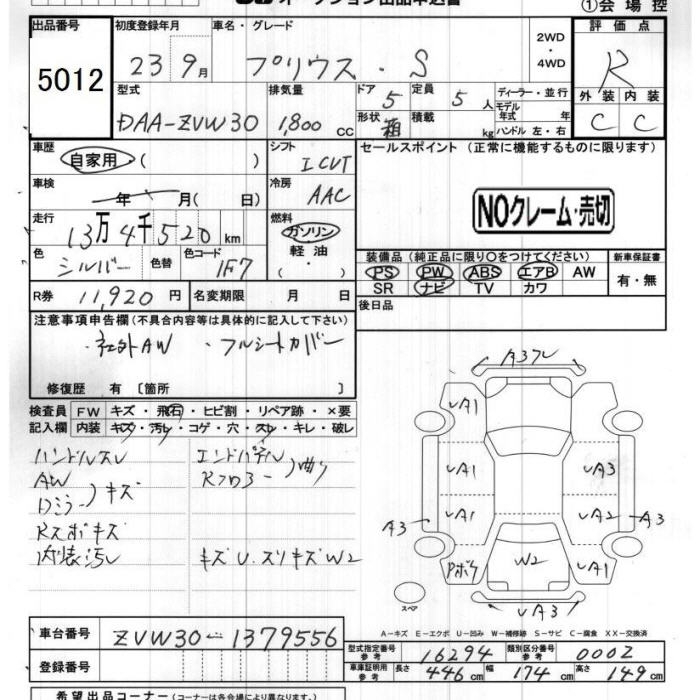 オークション出品申込書
①会場控
出品番号 初度登録年月 車名・グレード 2WD ・ 4WD 評価点
5012 23 9月 プリウス ・ S R
型式 排気量 ドア 5 定員 5人 ディーラー・並行 外装 内装
DAA-ZVW30 1,800 cc 形状 箱 積載 kg モデル年式 年 ハンドル 左・右 C C
車歴 自家用 ( ) シフト ICVT セールスポイント (正常に機能するものに限ります)
車検 年 月(日) 冷房 AAC
NOクレーム・売切
走行 13万4千520km 燃料 ガソリン 軽油 ・( )
色 シルバー 色替 色コード 1F7
装備品 (純正品に限り○をつけてください) 新車保証書
PS PW ABS エアB AW 有・無
SR ナビ TV カワ
R券 11,920円 名変期限 月 日 後日品
注意事項申告欄 (不具合内容等は具体的に記入して下さい)
・社外AW ・フルシートカバー
修復歴 有 [箇所 ]
検査員 FW キズ・飛石・ヒビ割・リペア跡・×要
記入欄 内装 キズ・汚レ・コゲ・穴・スレ・キレ・破レ
ハンドルスレ エンドパネル
AW Rフロアー 曲り
Dミラー キズ
Rスポキズ
内装汚レ キズU.スリキズW2
A3フレ
UA1
UA1 UA3
UA1 UA2
A3 A3
Pボケ W2 UA1
スペア UA3
A-キズ E-エクボ U-凹み W-補修跡 S-サビ C-腐食 XX-交換済
車台番号 ZVW30-1379556
型式指定番号 参考 16294 類別区分番号 参考 0002
登録番号 車庫証明用 参考 長さ 446cm 幅 174cm 高さ 149cm
希望出品コーナー (コーナーは各会場により異なります)